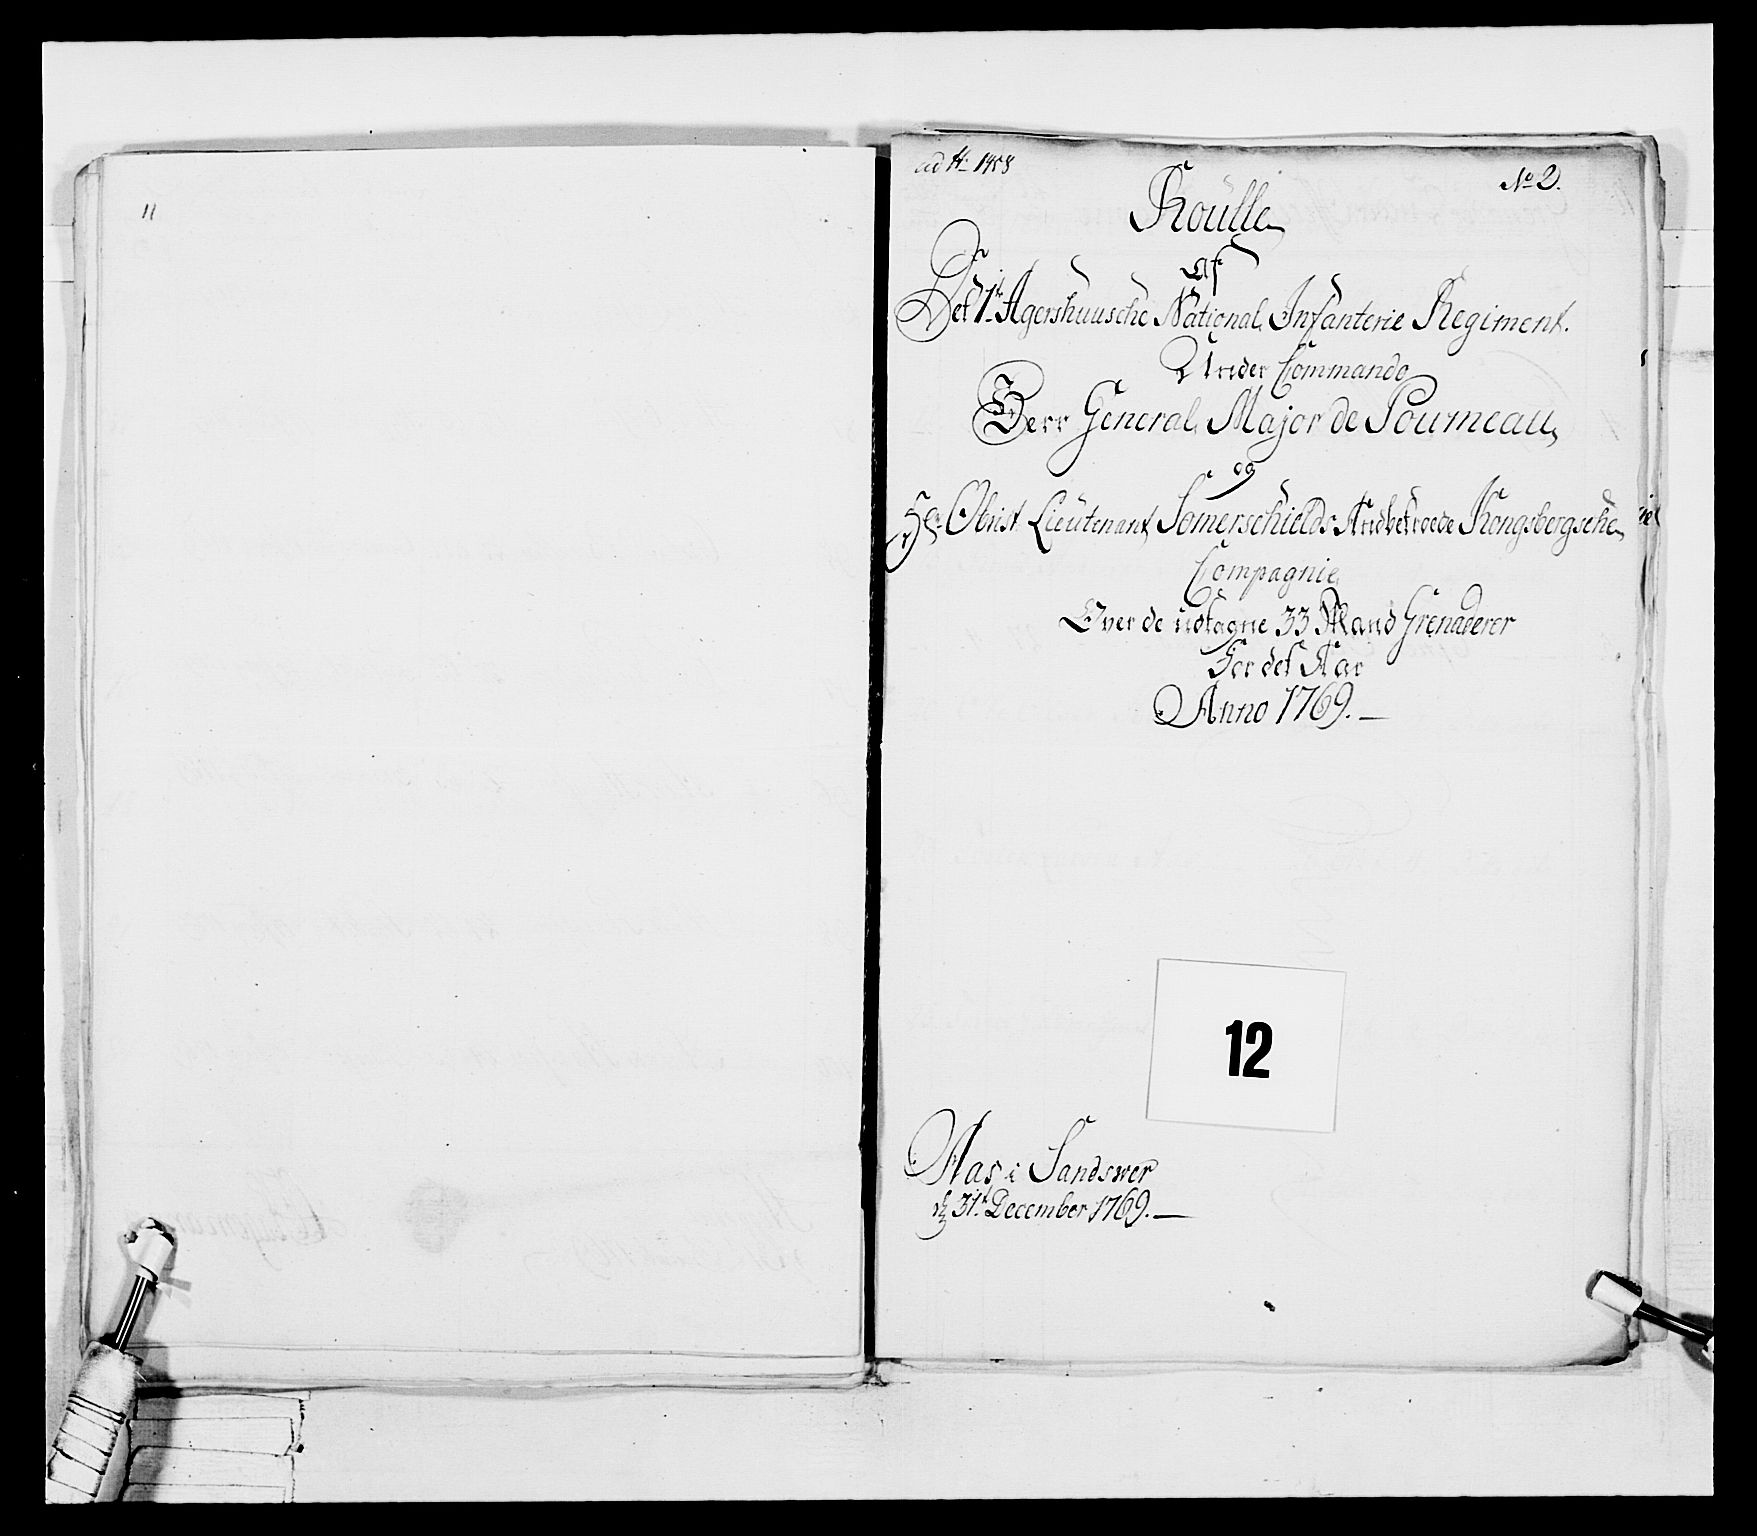 11
ad № 1408
№ 2.
Roulle
Af
Det 1te Agershuusche National Infanterie Regiment.
Under Commando
Herr General Major de Pourneau
og
Hr. Obrist Lieutenant Somerschields Anbetroede Kongsbergsche
Compagnie
Over de udtagne 33 Mand Grenaderer
For det Aar
Anno 1769.
12
Aas i Sandswer
d 31te December 1769.